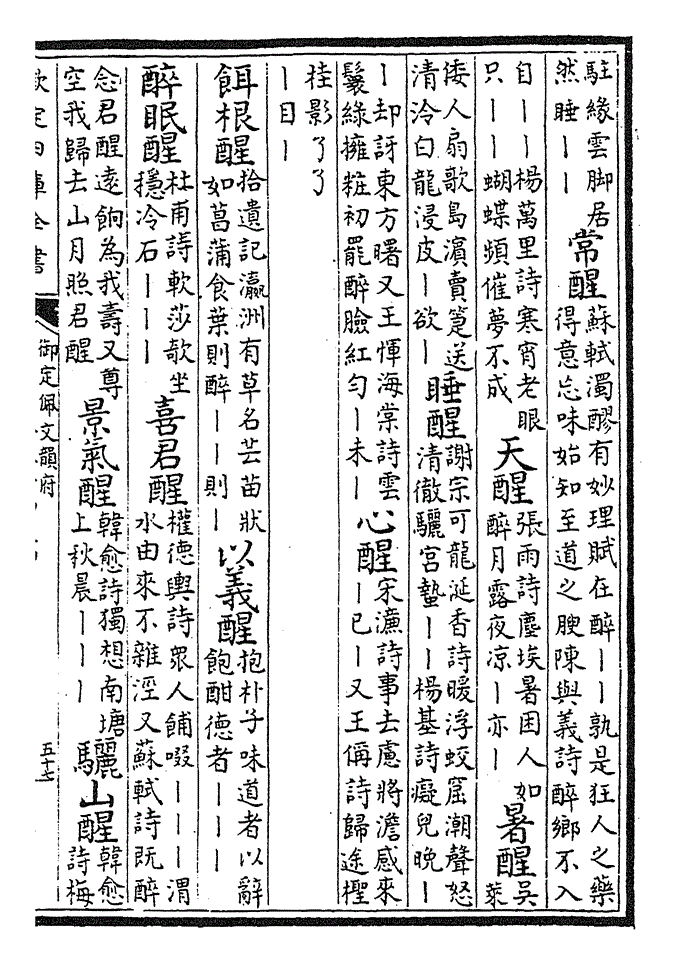 駐緣雲脚居
然睡丨丨
常醒
蘇軾濁醪有妙理賦在醉丨丨孰是狂人之藥
得意忘味始知至道之腴陳與義詩醉鄉不入
自丨丨楊萬里詩寒宵老眼
只丨丨蝴蝶頻催夢不成
天醒
張雨詩塵埃暑困人如
醉月露夜凉丨亦丨
暑醒
吳
萊
倭人扇歌島濱賣箑送
清泠白龍浸皮丨欲丨
睡醒
謝宗可龍涎香詩暖浮蛟窟潮聲怒
清徹驪宮蟄丨丨楊基詩癡兒晚丨
丨却訝東方曙又王惲海棠詩雲
鬟綠擁粧初罷醉臉紅勻丨未丨
心醒
宋濂詩事去慮將澹感來
丨已丨又王偁詩歸途檉
桂影了了
丨目丨
餌根醒
拾遺記瀛洲有草名芸苗狀
如菖蒲食葉則醉丨丨則丨
以義醒
抱朴子味道者以辭
飽酣德者丨丨丨
醉眠醒
杜甫詩軟莎欹坐
穩冷石丨丨丨
喜君醒
權德輿詩眾人餔啜丨丨丨渭
水由來不雜涇又蘇軾詩既醉
念君醒遠餉為我壽又尊
空我歸去山月照君醒
景氣醒
韓愈詩獨想南塘
上秋晨丨丨丨
驪山醒
韓愈
詩梅
欽定四庫全書
御定佩文韻府
五十七